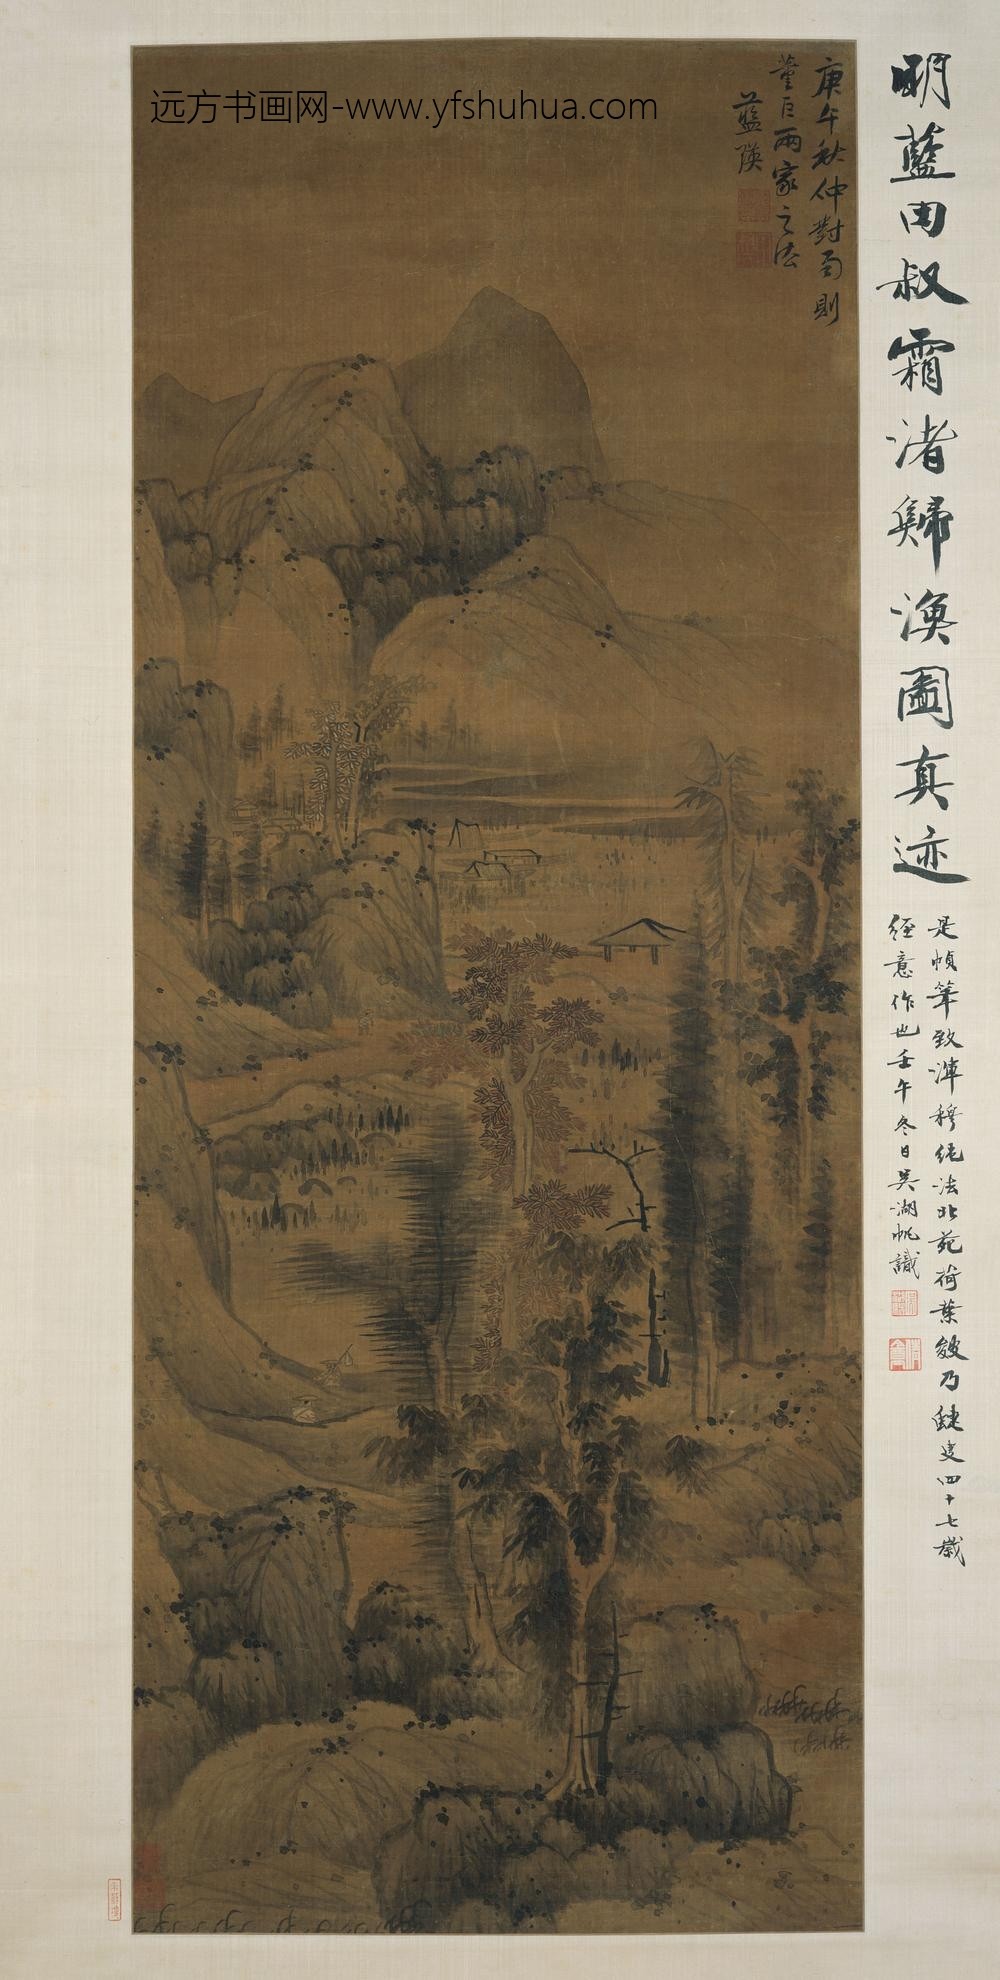 远方书画网-www.yfshuhua.com
明藍田叔霜渚歸漁圖真迹
是幀筆致渾穆純法北苑荷葉皴乃蜨叟四十七歲
經意作也壬午冬日吳湖帆識
庚午秋仲對雨則
董巨兩家之法
藍瑛